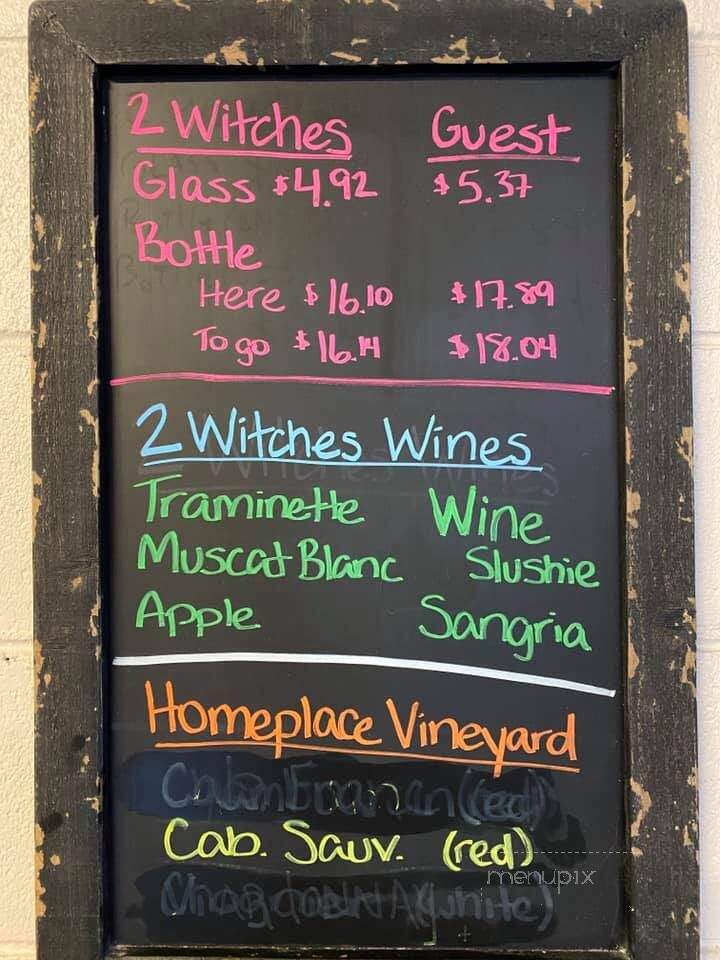 2 Witches Guest
Glass $4.92 $5.37
Bottle
Here $16.10 $17.89
To go $16.14 $18.04
2 Witches Wines
Traminette Wine
Muscat Blanc Slushie
Apple Sangria
Homeplace Vineyard
(red)
Cab. Sauv. (red)
menupix
(white)